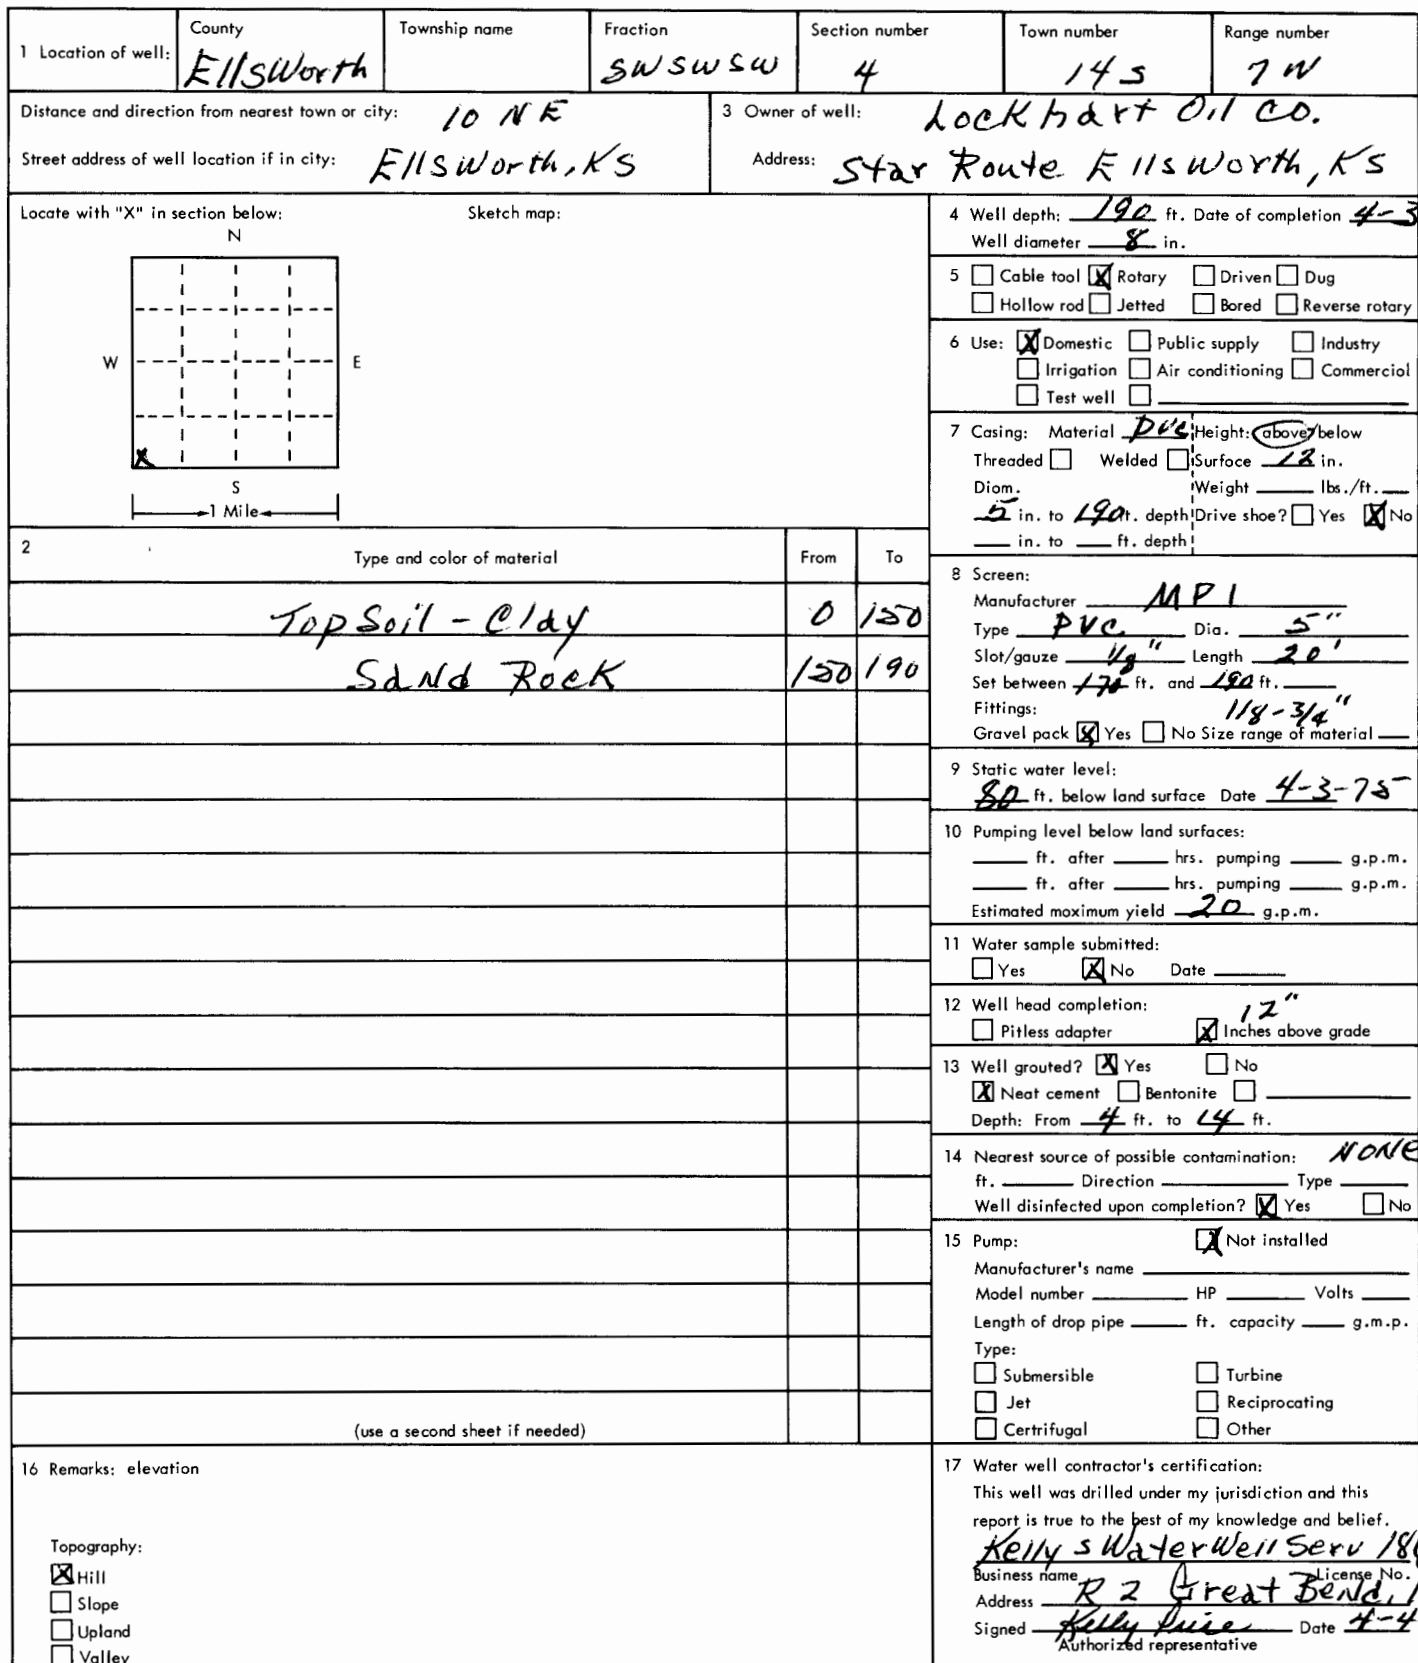 1 Location of well: County Township name Fraction Section number Town number Range number
Ellsworth SW SW SW 4 14 S 7 W
Distance and direction from nearest town or city: 10 NE
Street address of well location if in city: Ellsworth, KS
3 Owner of well: Lockhart Oil Co.
Address: Star Route Ellsworth, KS
Locate with "X" in section below: Sketch map:
N
W E
X
S
1 Mile
2 Type and color of material From To
Top Soil - Clay 0 150
Sand Rock 150 190
(use a second sheet if needed)
4 Well depth: 190 ft. Date of completion 4-3
Well diameter 8 in.
5 ☐ Cable tool ☒ Rotary ☐ Driven ☐ Dug
☐ Hollow rod ☐ Jetted ☐ Bored ☐ Reverse rotary
6 Use: ☒ Domestic ☐ Public supply ☐ Industry
☐ Irrigation ☐ Air conditioning ☐ Commercial
☐ Test well ☐
7 Casing: Material PVC Height: above/below
Threaded ☐ Welded ☐ Surface 12 in.
Diam. Weight ____ lbs./ft. ____
5 in. to 190 ft. depth Drive shoe? ☐ Yes ☒ No
____ in. to ____ ft. depth
8 Screen:
Manufacturer MPI
Type PVC Dia. 5"
Slot/gauze 1/8" Length 20'
Set between 170 ft. and 190 ft. ____
Fittings: 1/8 - 3/4"
Gravel pack ☒ Yes ☐ No Size range of material ____
9 Static water level:
80 ft. below land surface Date 4-3-75
10 Pumping level below land surfaces:
____ ft. after ____ hrs. pumping ____ g.p.m.
____ ft. after ____ hrs. pumping ____ g.p.m.
Estimated maximum yield 20 g.p.m.
11 Water sample submitted:
☐ Yes ☒ No Date ____
12 Well head completion: 12"
☐ Pitless adapter ☒ Inches above grade
13 Well grouted? ☒ Yes ☐ No
☒ Neat cement ☐ Bentonite ☐ ____
Depth: From 4 ft. to 14 ft.
14 Nearest source of possible contamination: NONE
ft. ____ Direction ____ Type ____
Well disinfected upon completion? ☒ Yes ☐ No
15 Pump: ☒ Not installed
Manufacturer's name ____
Model number ____ HP ____ Volts ____
Length of drop pipe ____ ft. capacity ____ g.m.p.
Type:
☐ Submersible ☐ Turbine
☐ Jet ☐ Reciprocating
☐ Certrifugal ☐ Other
16 Remarks: elevation
Topography:
☒ Hill
☐ Slope
☐ Upland
☐ Valley
17 Water well contractor's certification:
This well was drilled under my jurisdiction and this
report is true to the best of my knowledge and belief.
Kelly s Water Well Serv 18
Business name License No.
Address R 2 Great Bend,
Signed Kelly Price Date 4-4
Authorized representative